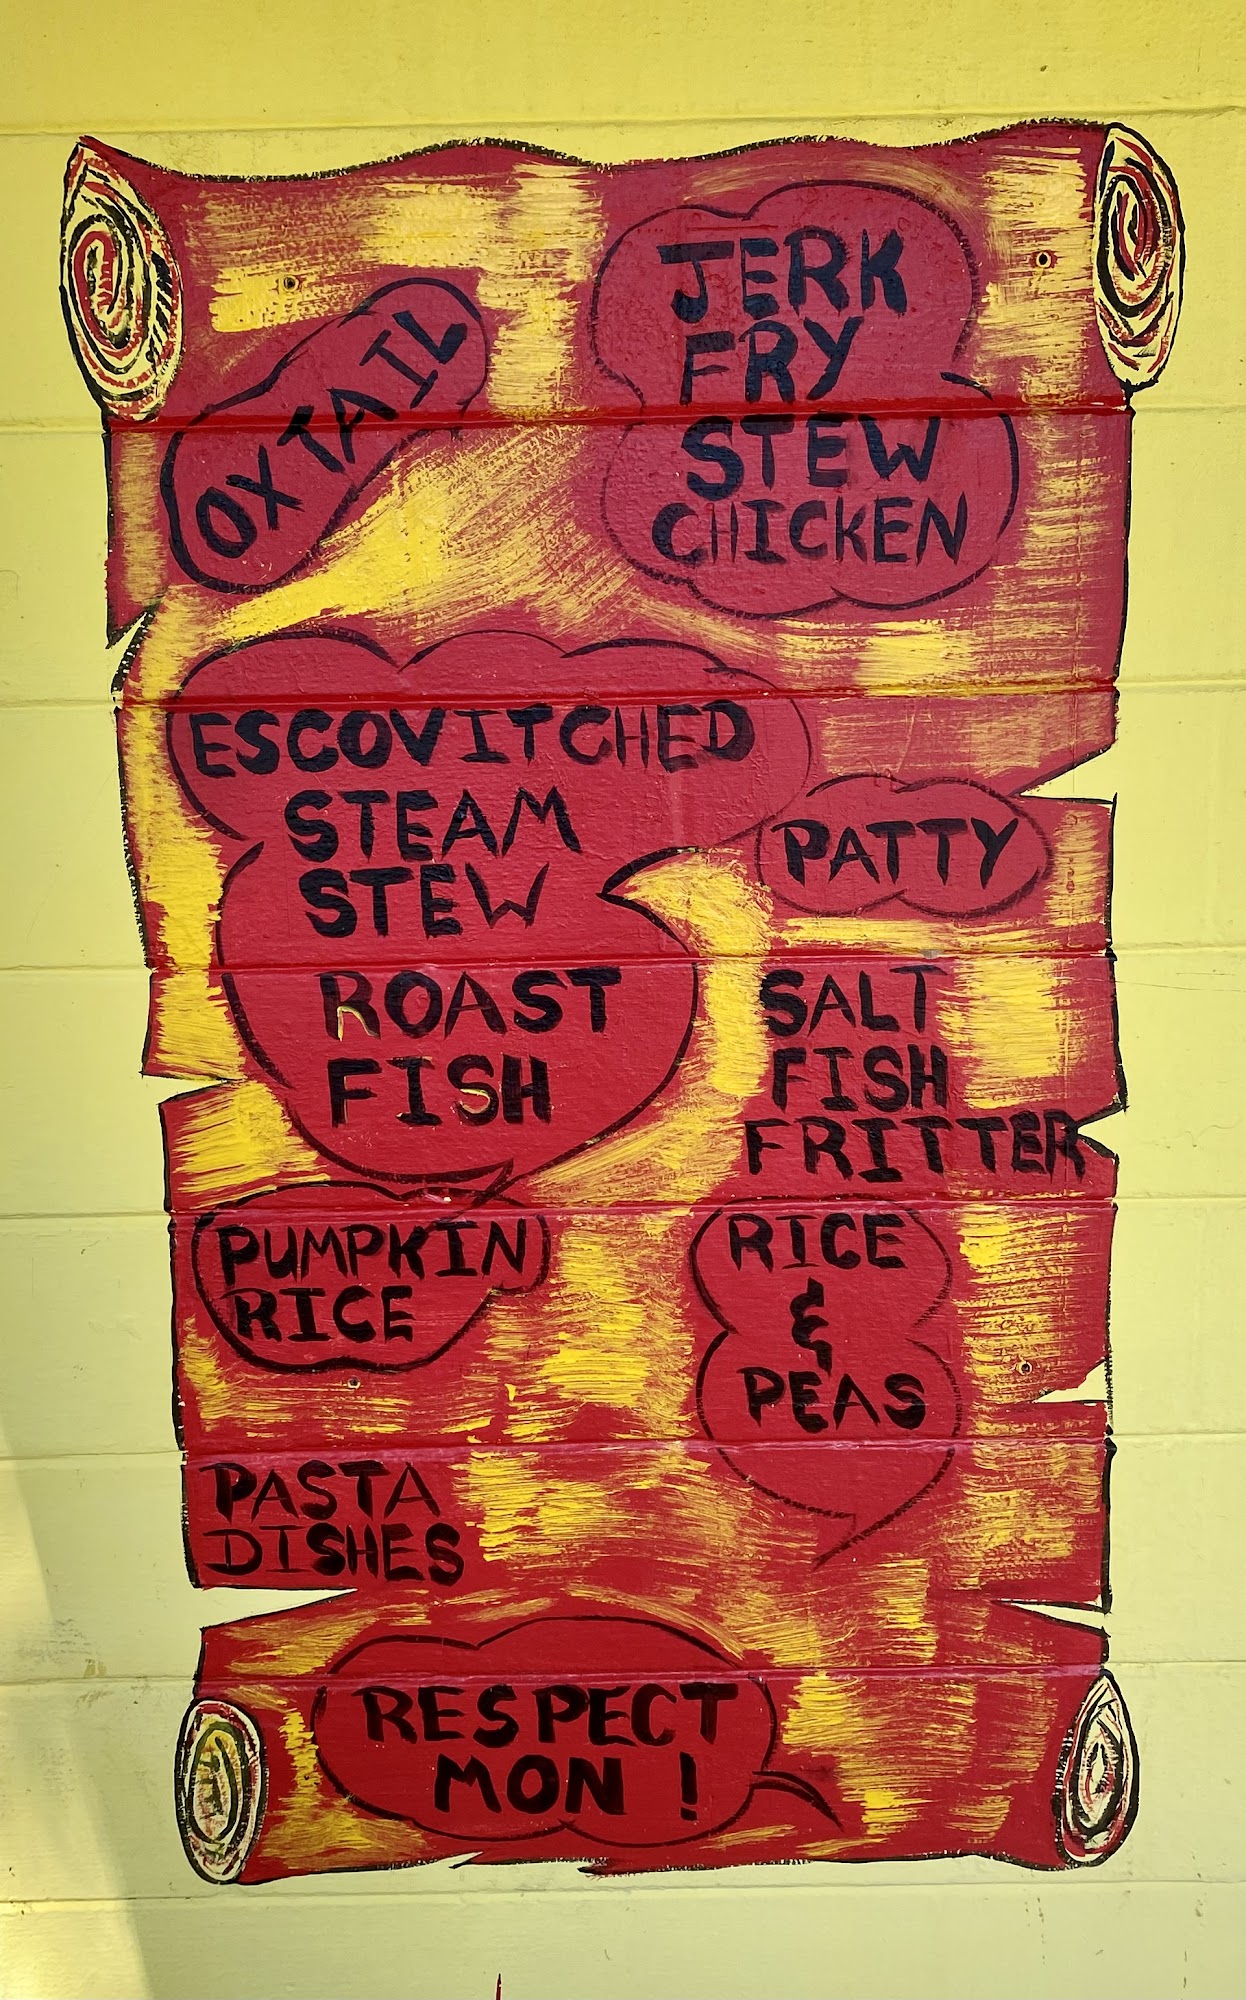 OXTAIL
JERK
FRY
STEW
CHICKEN
ESCOVITCHED
STEAM
STEW
ROAST
FISH
PATTY
SALT
FISH
FRITTER
PUMPKIN
RICE
RICE
&
PEAS
PASTA
DISHES
RESPECT
MON !